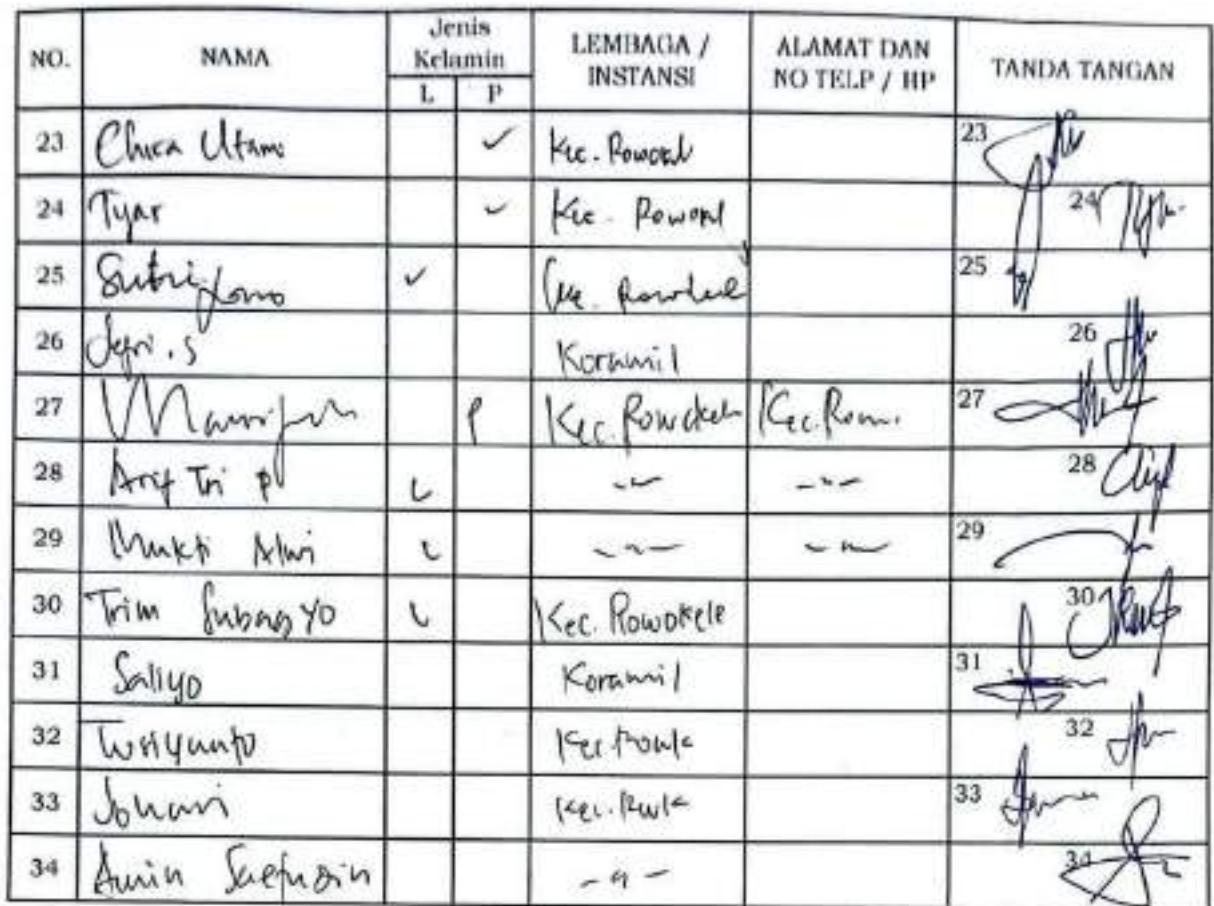 NO. NAMA Jenis Kelamin LEMBAGA / INSTANSI ALAMAT DAN NO TELP / HP TANDA TANGAN
L P
23 Chica Utami Kec. Rowokel 23
24 Tyar Kec. Rowokel 24
25 Sutriyono Kec. Rowokele 25
26 Jefri . S Koramil 26
27 P Kec. Rowokele Kec. Row. 27
28 Arif Tri P -"- -"- 28
29 Mukti Alwi -"- -"- 29
30 Trim Subagyo Kec. Rowokele 30
31 Saliyo Koramil 31
32 Tusiyanto 32
33 Johari 33
34 Amin Saefudin -"- 34